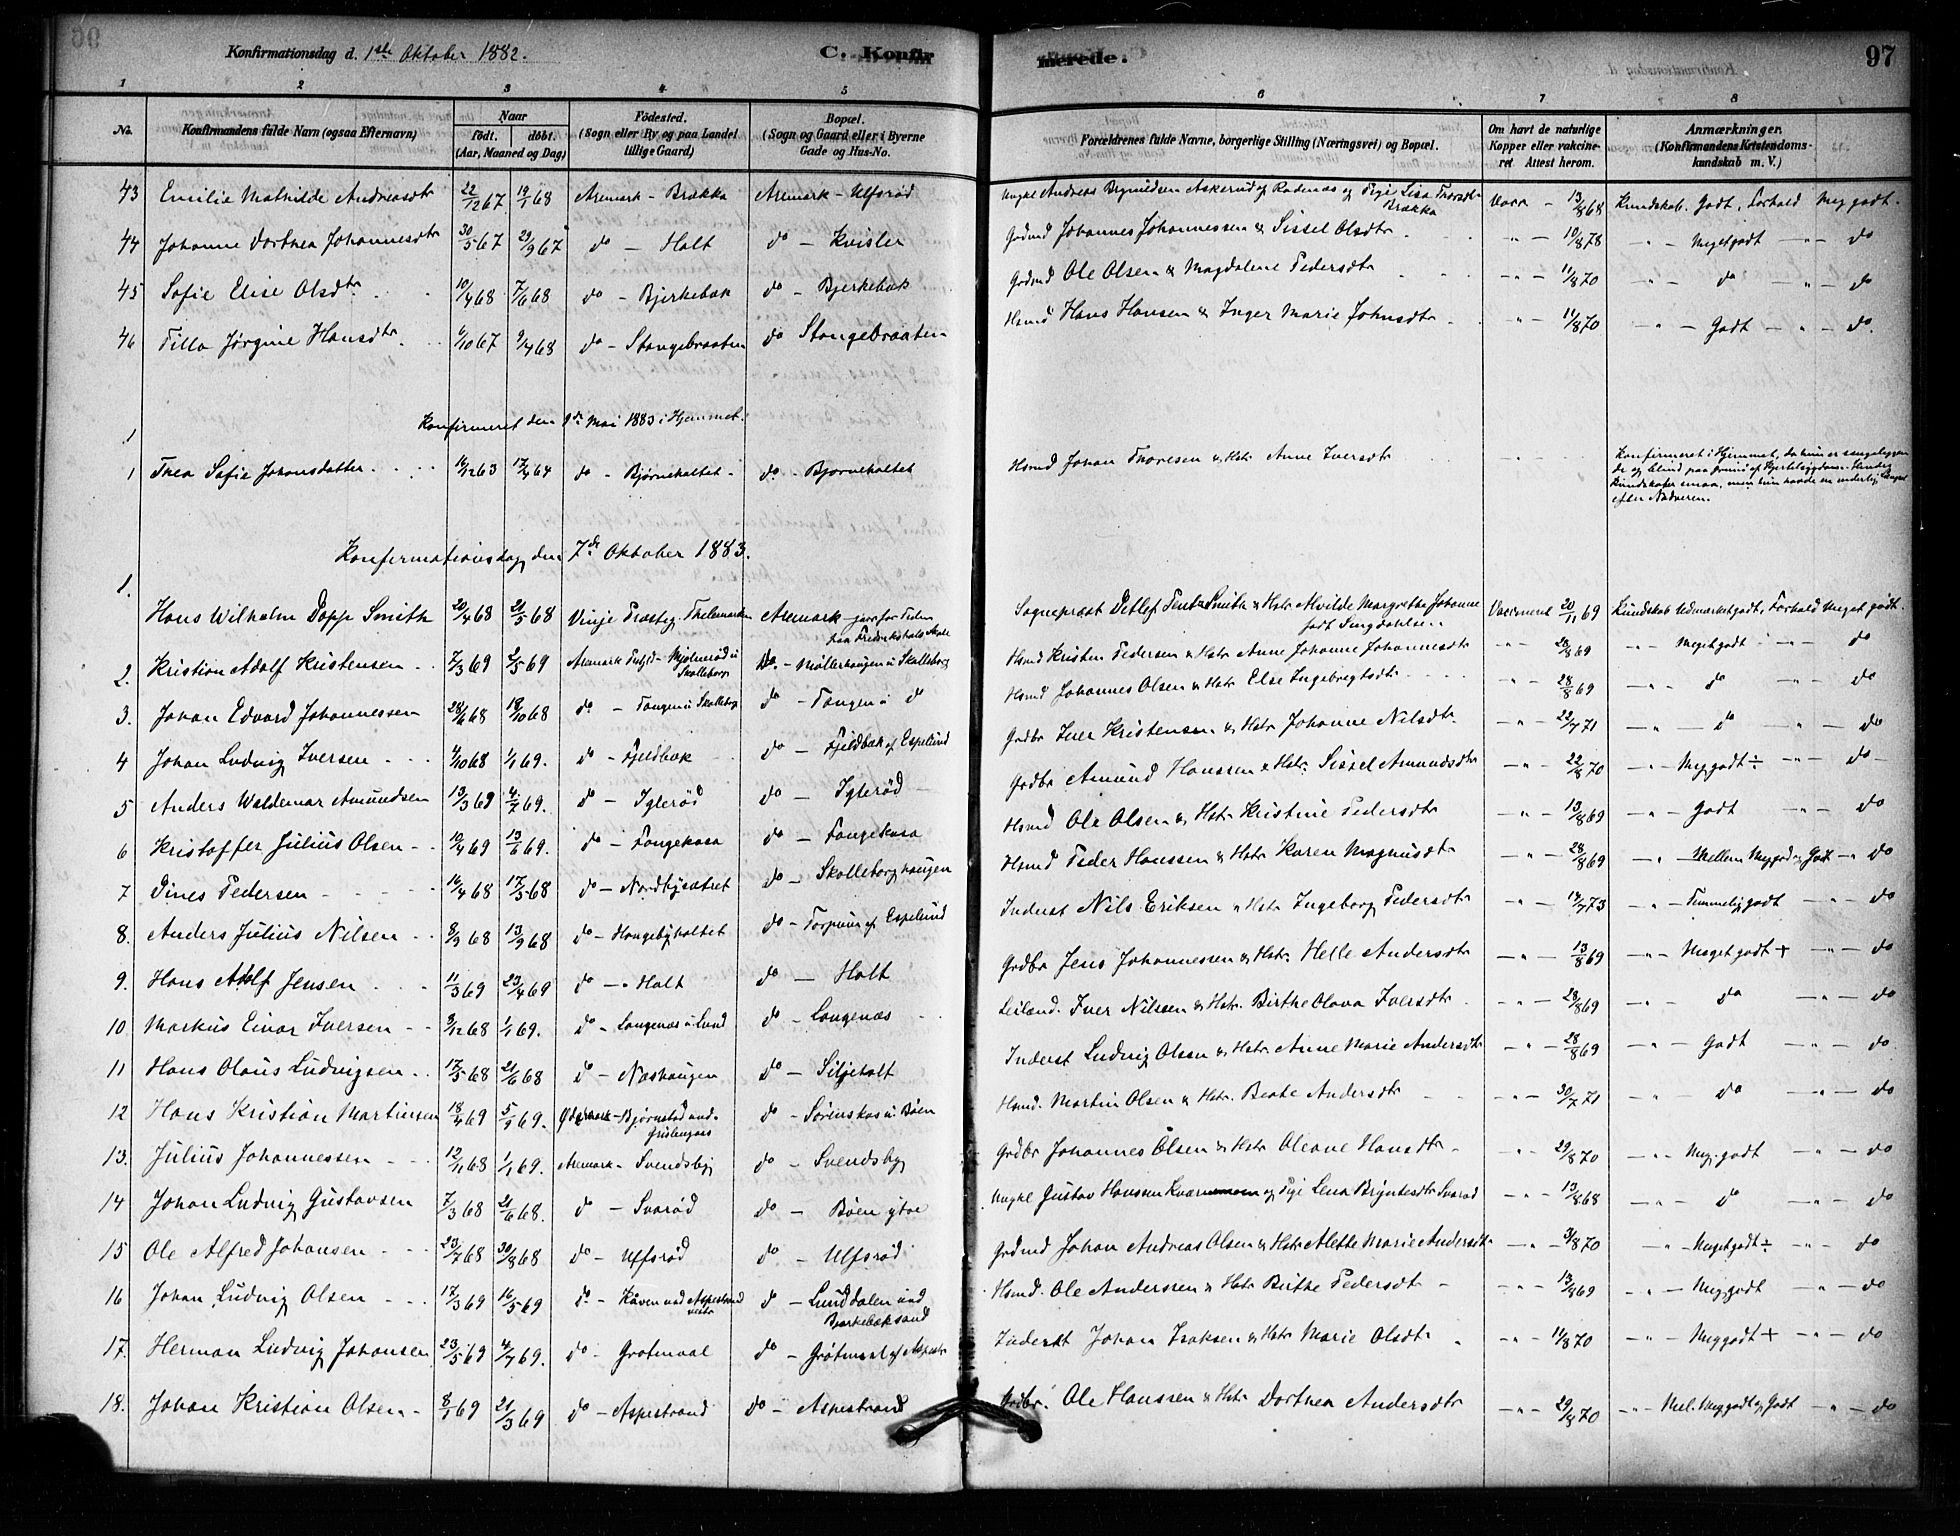 Konfirmationsdag d. 1ste Oktober 1882. C. Konfir merede. 97
1 2 3 4 5 6 7 8
No. Konfirmandens fulde Navn (ogsaa Efternavn) Naar født. døbt. (Aar, Maaned og Dag) Fødested. (Sogn eller By og paa Landet tillige Gaard) Bopæl. (Sogn og Gaard eller i Byerne Gade og Hus-No. Forældrenes fulde Navne, borgerlige Stilling (Næringsvei) og Bopæl. Om havt de naturlige Kopper eller vakcineret. Attest herom. Anmærkninger. (Konfirmandens Kristendomskundskab m. V.)
43 Emilie Mathilde Andreasdtr 22/12 67 19/1 68 Aremark - Brækka Aremark - Ulfsrød Ungkl Andreas Askerud af Rødenæs og Pige Lisa Brækka Vacc - 13/8 68 Kundskab. Godt, Forhold Meg godt.
44 Johanne Dorthea Johannesdtr 30/5 67 29/9 67 do - Holt do - Kvisler Grdmd Johannes Johannessen & Sissel Olsdtr. " - 10/8 78 - " - Meget godt - " - do
45 Sofie Elise Olsdtr 10/4 68 7/6 68 do - Bjerkebæk do - Bjerkebæk Grdmd Ole Olsen & Magdalene Pedersdtr " - 11/8 70 - " - do - " - do
46 Tilla Jørgine Hansdtr. 6/10 67 9/4 68 do - Stangebraaten do Stangebraaten Hsmd Hans Hansen & Inger Marie Johnsdtr " - 11/8 70 - " - Godt - " - do.
Konfirmeret den 9de Mai 1883 i Hjemmet.
1 Thea Sofie Johansdatter 16/12 63 17/4 64 do - Bjørneholtet do - Bjørneholtet Hsmd Johan Thoresen & Hstr. Anne Iversdtr Konfirmeret i Hjemmet, da hun er sengeliggen-
de og blind paa Grund af Hendes
Kundskaber smaa, men hun havde en inderlig
efter Nadveren.
Konfirmationsdag den 7de Oktober 1883.
1. Hans Wilhelm Popp Smith 20/4 68 21/5 68 Vinje Præsteg. Thelemarken Aremark - for Tiden paa Fredrikshalds Skole Sognepræst Ditlef Smith & Hstr. Alvilde Margrethe Johanne født Vaccineret 20/11 69 Kundskab Udmærket godt, Forhold Meget godt.
2. Kristian Adolf Kristensen 7/3 69 2/5 69 Aremark - Skolleborg Do. - Møllerhaugen u. Skolleborg Hsmd Kristen Pedersen & Hstr Anne Johanne Johannesdtr - " - 28/8 69 Meget godt - " - do
3. Johan Edvard Johannessen 28/6 68 18/10 68 do - Tangen u. Skolleborg do - Tangen u. do Hsmd Johannes Olsen & Hstr Else Ingebregtsdtr - " - 28/8 69 - " - do - " - do
4 Johan Ludvig Iversen 4/10 68 1/1 69. do - Fjeldbæk do - Fjeldbæk af Espelund Grdbr Iver Kristensen & Hstr Johanne Nilsdtr - " - 22/7 71 - " - do - " - do
5 Anders Waldemar Amundsen 13/3 69 4/7 69. do - Iglerød do - Iglerød Grdbr Amund Hanssen & Hstr. Sissel Amundsdtr - " - 22/8 70 - " - Meg godt ÷ - " - do
6 Kristoffer Julius Olsen 10/4 69 13/6 69. do - Langekasa do - Langekasa Hsmd Ole Olsen & Hstr Kristine Pedersdtr - " - 13/8 69 - " - Godt - " - do
7 Dines Pedersen 16/4 68 17/5 68 do - Nordbysætret do - Skolleborghaugen Hsmd Peder Hanssen & Hstr Karen Magnusdtr - " - 28/8 69 - " - Mellem Meg godt & Godt - " do
8. Anders Julius Nilsen 8/9 68 13/9 68 do - Haugebyholtet do - Torpum af Espelund Inderst Nils Eriksen & Hstr Ingeborg Pedersdtr - " - 14/7 73 - " - Temmelig godt - " - do
9. Hans Adolf Jensen 11/3 69 23/4 69 do - Holt do - Holt Grdbr Jens Johannessen & Hstr. Helle Andersdtr - " - 13/8 69 - " - Meget godt + - " - do
10 Markus Einar Iversen 3/12 68 1/1 69. do - Langenæs u. Lund do - Langenæs Leiland. Iver Nilssen & Hstr. Birthe Olava Iversdtr - " - 28/8 69 - " - do - " - do
11 Hans Olaus Ludvigsen 17/5 68 21/6 68 do - Næshaugen do - Siljeholt Inderst Ludvig Olsen & Hstr. Anne Marie Andersdtr - " - 28/8 69 - " - Godt - " - do
12 Hans Kristian Martinsen 18/4 69 5/5 69. Ødemark - Bjørnstad und. do - Sørenskas u. Bøen Hsmd. Martin Olsen & Hstr. Beate Andersdtr - " - 30/7 71 - " - do - " - do
13. Julius Johannessen 12/11 68 1/1 69. Aremark - Svendsby do - Svendsby Grdbr Johannes Olsen & Hstr Oleane Hansdtr - " - 29/8 70 - " - Meg. godt - " - do
14 Johan Ludvig Gustavsen 7/3 68 21/6 68. do - Svarød do - Bøen ytre Ungkl Gustav Hanssen og Pige Lena Bryntesdtr Svarød - " - 13/8 68 - " - do - " - do
15 Ole Alfred Johansen 23/7 68 30/8 68 do - Ulfsrød do - Ulfsrød Grdmd Johan Andreas Olsen & Hstr Alette Marie Andersdtr - " - 9/8 70 " - Meget godt ÷ - " - do
16 Johan Ludvig Olsen 17/3 69 16/5 69 do - Kåven und Aspestrand do - Lunddalen und Bjerkebæksand Hsmd. Ole Anderssen & Hstr Birthe Pedersdtr - " - 13/8 69 - " - Meg godt - " - do
17. Herman Ludvig Johansen 23/5 69 4/7 69. do - Grotmaal do - Grøtmaal af Aspestr. Inderst Johan Isaksen & Hstr Marie Olsdtr - " - 11/8 70 - " - Meg godt + - " - do
18. Johan Kristian Olsen 8/1 69 21/3 69 do - Aspestrand do - Aspestrand Grdbr. Ole Hanssen & Hstr Dorthea Andersdtr - " - 29/8 70 - " - Mel. Meg godt og Godt - " - do